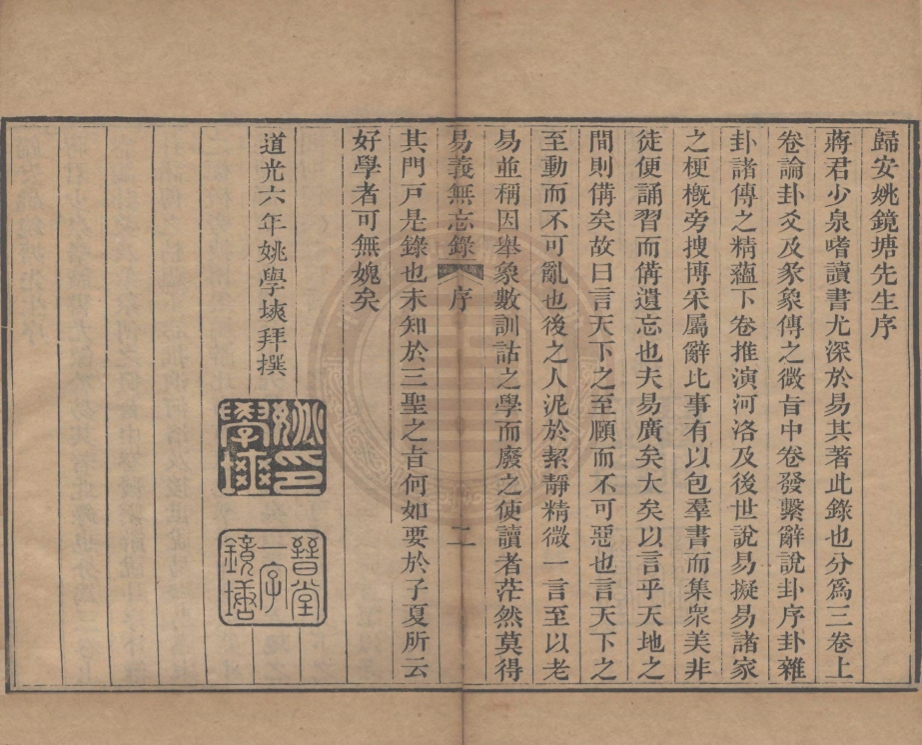 歸安姚鏡塘先生序
蔣君少泉嗜讀書尤深於易其著此錄也分爲三卷上
卷論卦爻及彖象傳之微旨中卷發繫辭說卦序卦雜
卦諸傳之精蘊下卷推演河洛及後世說易擬易諸家
之梗槪旁搜博采屬辭比事有以包羣書而集衆美非
徒便誦習而備遺忘也夫易廣矣大矣以言乎天地之
間則備矣故曰言天下之至賾而不可惡也言天下之
至動而不可亂也後之人泥於絜靜精微一言至以老
易並稱因舉象數訓詁之學而廢之使讀者茫然莫得
易義無忘錄 序 二
其門戸是錄也未知於三聖之旨何如要於子夏所云
好學者可無媿矣
道光六年姚學塽拜撰
姚學塽印
晉堂一字鏡塘